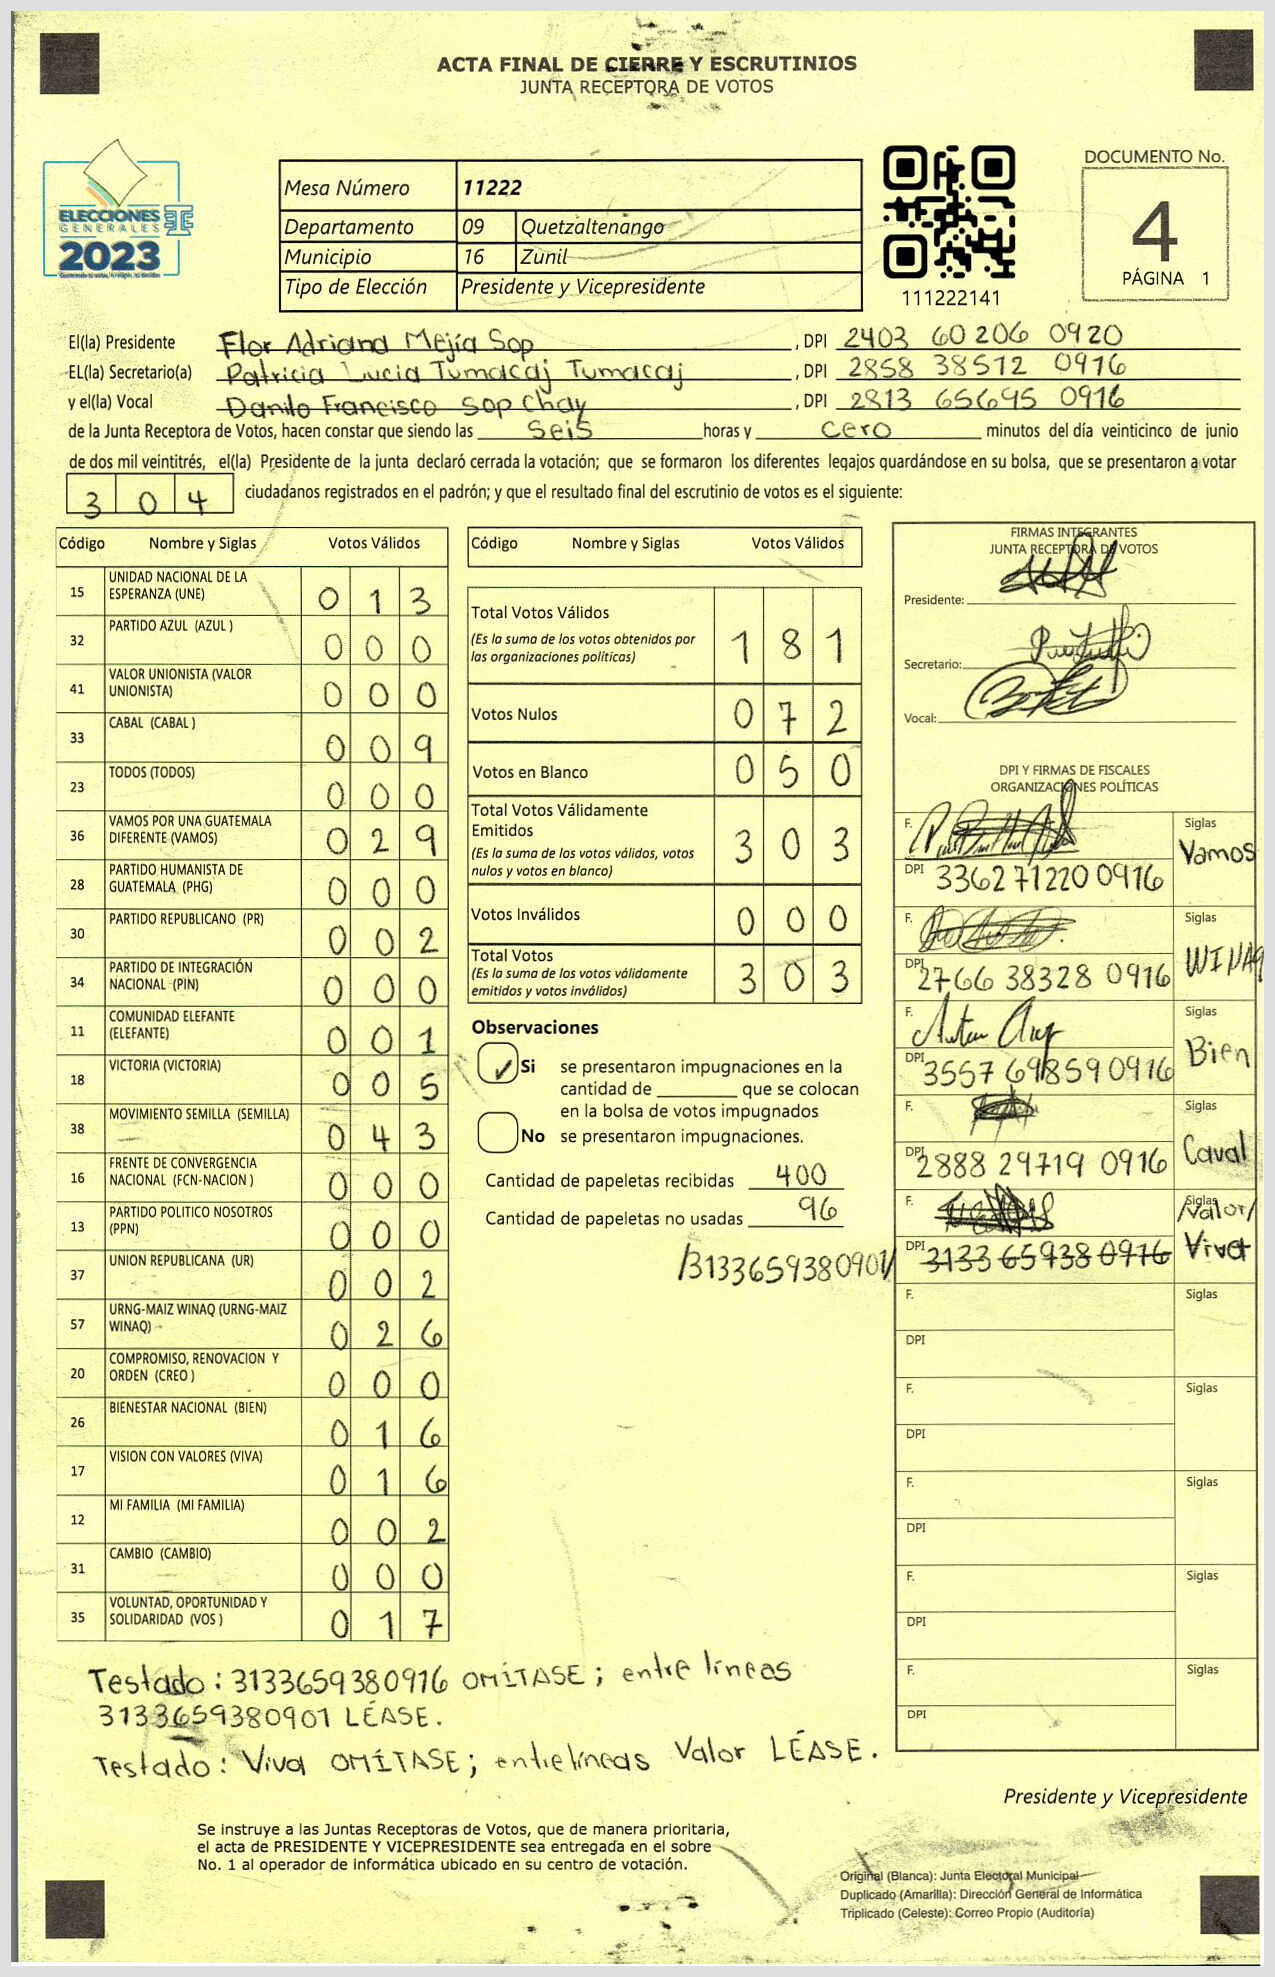 ACTA FINAL DE CIERRE Y ESCRUTINIOS
JUNTA RECEPTORA DE VOTOS
ELECCIONES
GENERALES
2023
Mesa Número 11222
Departamento 09 Quetzaltenango
Municipio 16 Zunil
Tipo de Elección Presidente y Vicepresidente
111222141
DOCUMENTO No.
4
PÁGINA 1
El(la) Presidente Flor Adriana Mejía Sop, DPI 2403 60206 0920
EL(la) Secretario(a) Patricia Lucia Tumacaj Tumacaj, DPI 2858 38512 0916
y el(la) Vocal Danilo Francisco Sop Chay, DPI 2813 65695 0916
de la Junta Receptora de Votos, hacen constar que siendo las seis horas y cero minutos del día veinticinco de junio
de dos mil veintitrés, el(la) Presidente de la junta declaró cerrada la votación; que se formaron los diferentes legajos quardándose en su bolsa, que se presentaron a votar
304 ciudadanos registrados en el padrón; y que el resultado final del escrutinio de votos es el siguiente:
Código Nombre y Siglas Votos Válidos
15 UNIDAD NACIONAL DE LA ESPERANZA (UNE) 013
32 PARTIDO AZUL (AZUL ) 000
41 VALOR UNIONISTA (VALOR UNIONISTA) 000
33 CABAL (CABAL ) 009
23 TODOS (TODOS) 000
36 VAMOS POR UNA GUATEMALA DIFERENTE (VAMOS) 029
28 PARTIDO HUMANISTA DE GUATEMALA (PHG) 000
30 PARTIDO REPUBLICANO (PR) 002
34 PARTIDO DE INTEGRACIÓN NACIONAL (PIN) 000
11 COMUNIDAD ELEFANTE (ELEFANTE) 001
18 VICTORIA (VICTORIA) 005
38 MOVIMIENTO SEMILLA (SEMILLA) 043
16 FRENTE DE CONVERGENCIA NACIONAL (FCN-NACION ) 000
13 PARTIDO POLITICO NOSOTROS (PPN) 000
37 UNION REPUBLICANA (UR) 002
57 URNG-MAIZ WINAQ (URNG-MAIZ WINAQ) 026
20 COMPROMISO, RENOVACION Y ORDEN (CREO ) 000
26 BIENESTAR NACIONAL (BIEN) 016
17 VISION CON VALORES (VIVA) 016
12 MI FAMILIA (MI FAMILIA) 002
31 CAMBIO (CAMBIO) 000
35 VOLUNTAD, OPORTUNIDAD Y SOLIDARIDAD (VOS ) 017
Código Nombre y Siglas Votos Válidos
Total Votos Válidos 181
(Es la suma de los votos obtenidos por las organizaciones politicas)
Votos Nulos 072
Votos en Blanco 050
Total Votos Válidamente Emitidos 303
(Es la suma de los votos válidos, votos nulos y votos en blanco)
Votos Inválidos 000
Total Votos 303
(Es la suma de los votos válidamente emitidos y votos inválidos)
Observaciones
Si se presentaron impugnaciones en la
cantidad de ________ que se colocan
en la bolsa de votos impugnados
No se presentaron impugnaciones.
Cantidad de papeletas recibidas 400
Cantidad de papeletas no usadas 96
/3133659380901/
FIRMAS INTEGRANTES
JUNTA RECEPTORA DE VOTOS
Presidente:
Secretario:
Vocal:
DPI Y FIRMAS DE FISCALES
ORGANIZACIONES POLÍTICAS
F. Siglas Vamos
DPI 3362 71220 0916
F. Siglas WINAQ
DPI 2766 38328 0916
F. Siglas Bien
DPI 3557 69859 0916
F. Siglas Caval
DPI 2888 29719 0916
F. Siglas /Valor/
DPI 3133 65938 0916 Viva
F. Siglas
DPI
F. Siglas
DPI
F. Siglas
DPI
F. Siglas
DPI
F. Siglas
DPI
Testado: 3133659380916 OMÍTASE; entre líneas
3133659380901 LÉASE.
Testado: Viva OMÍTASE; entrelíneas Valor LÉASE.
Presidente y Vicepresidente
Se instruye a las Juntas Receptoras de Votos, que de manera prioritaria,
el acta de PRESIDENTE Y VICEPRESIDENTE sea entregada en el sobre
No. 1 al operador de informática ubicado en su centro de votación.
Original (Blanca): Junta Electoral Municipal
Duplicado (Amarilla): Dirección General de Informática
Triplicado (Celeste): Correo Propio (Auditoría)